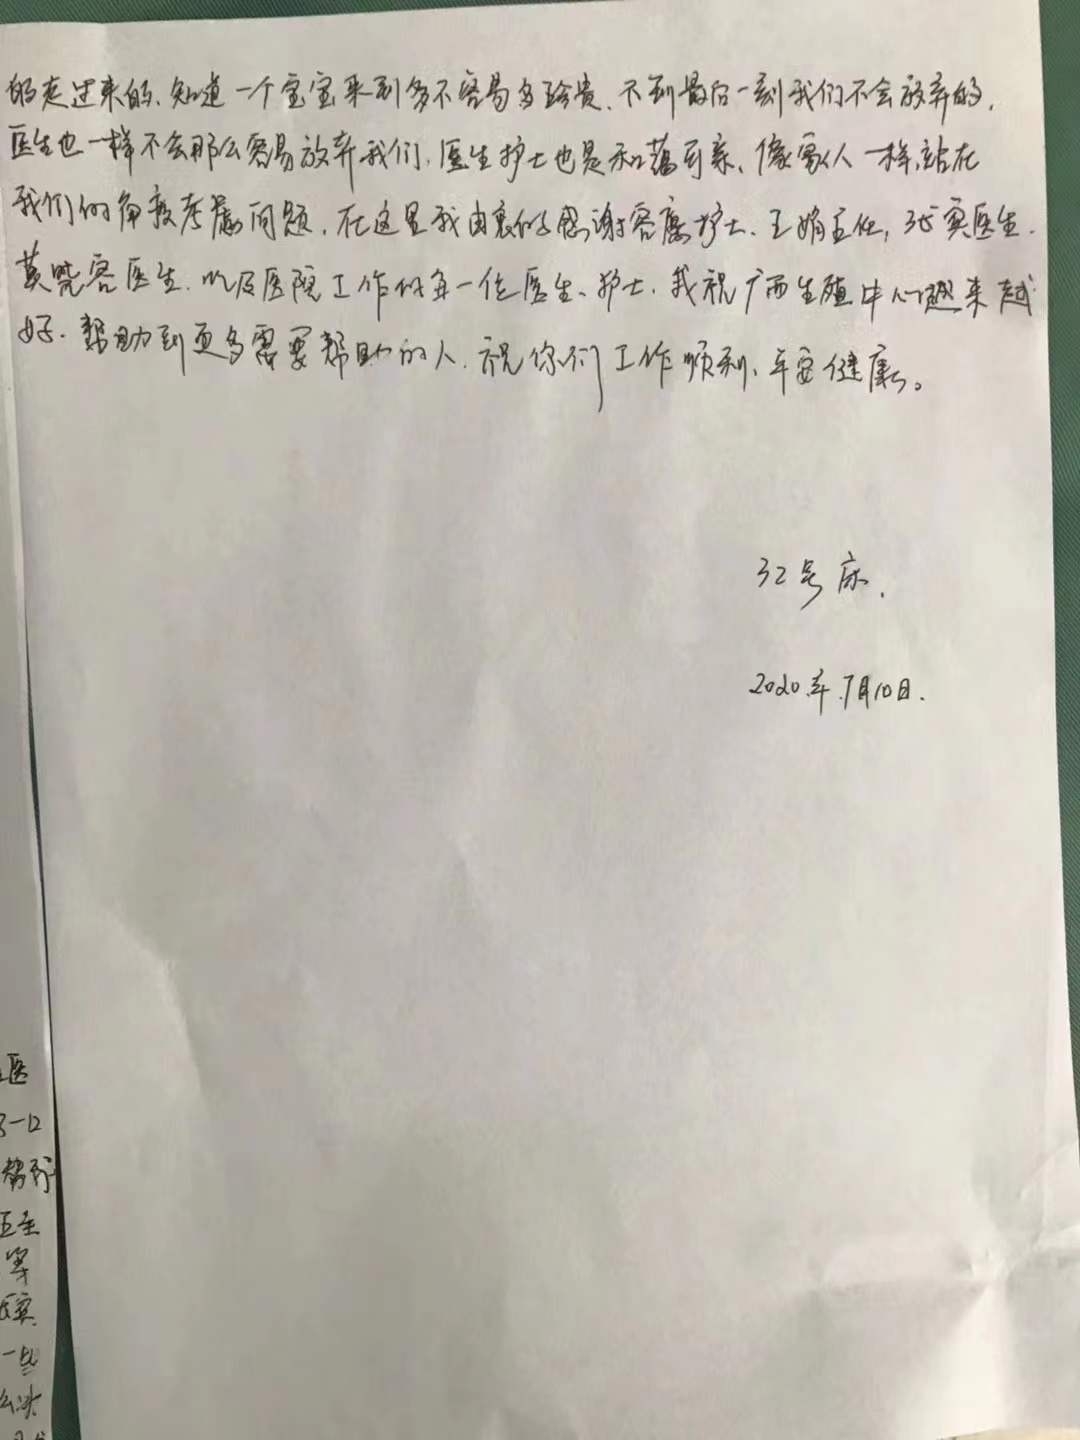 的走过来的、知道一个宝宝来到多不容易多珍贵、不到最后一刻我们不会放弃的,
医生也一样不会那么容易放弃我们、医生护士也是和蔼可亲、像家人一样,站在
我们的角度考虑问题,在这里我由衷的感谢容 护士、王娟主任, 医生、
黄 容医生、以及医院工作的每一位医生、护士、我祝广西生殖中心越来越
好、帮助到更多需要帮助的人、祝你们工作顺利、平安健康。
32号床.
2020.年.7月10日.
医
一
帮
主
等
一些